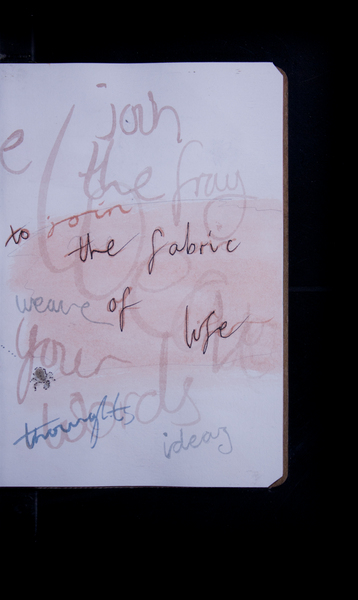 join
the fray
to join
the fabric
weave of
life
your
words
thoughts
ideas